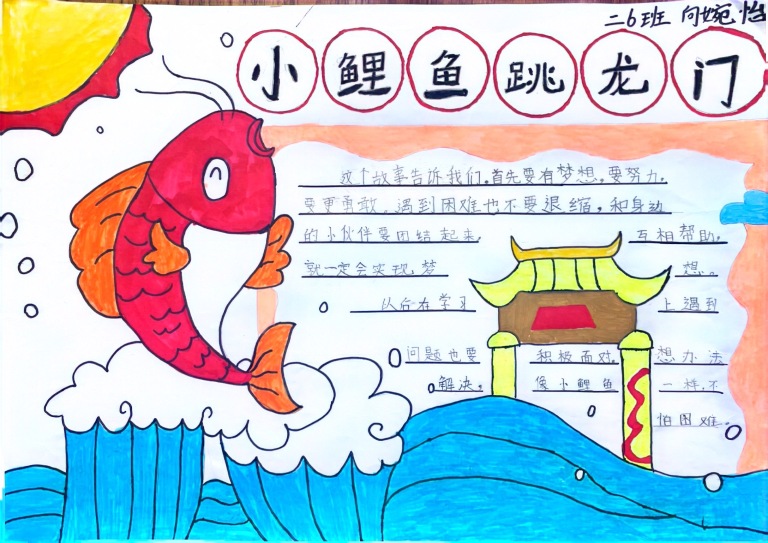 二6班 向婉怡
小鲤鱼跳龙门
这个故事告诉我们,首先要有梦想,要努力,
要更勇敢,遇到困难也不要退缩,和身边
的小伙伴要团结起来, 互相帮助,
就一定会实现梦 想。
以后在学习 上遇到
问题也要 积极面对, 想办法
解决。 像小鲤鱼 一样,不
怕困难。